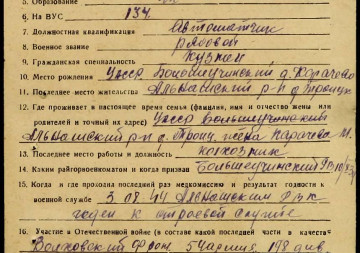 5. Образование
6. На ВУС 134
7. Должностная квалификация Автоматчик
8. Военное звание рядовой
9. Гражданская специальность кузнец
10. Место рождения Удсср д. Карачево
11. Последнее место жительства Алнашский р-н д. Троицк
12. Где проживает в настоящее время семья (фамилия, имя и отчество жены или
родителей и точный их адрес) Удсср
Алнашский р-н д. Троиц. жена Карачева М.
13. Последнее место работы и должность колхозник
14. Каким райгорвоенкоматом и когда призван
15. Когда и где проходил последний раз медкомиссию и результат годности к
военной службе 3.08.44 Алнашским РВК
годен к строевой службе
16. Участие в Отечественной войне (в составе какой последней части в качестве
Волховский фрон. 54 армия, 198 див.